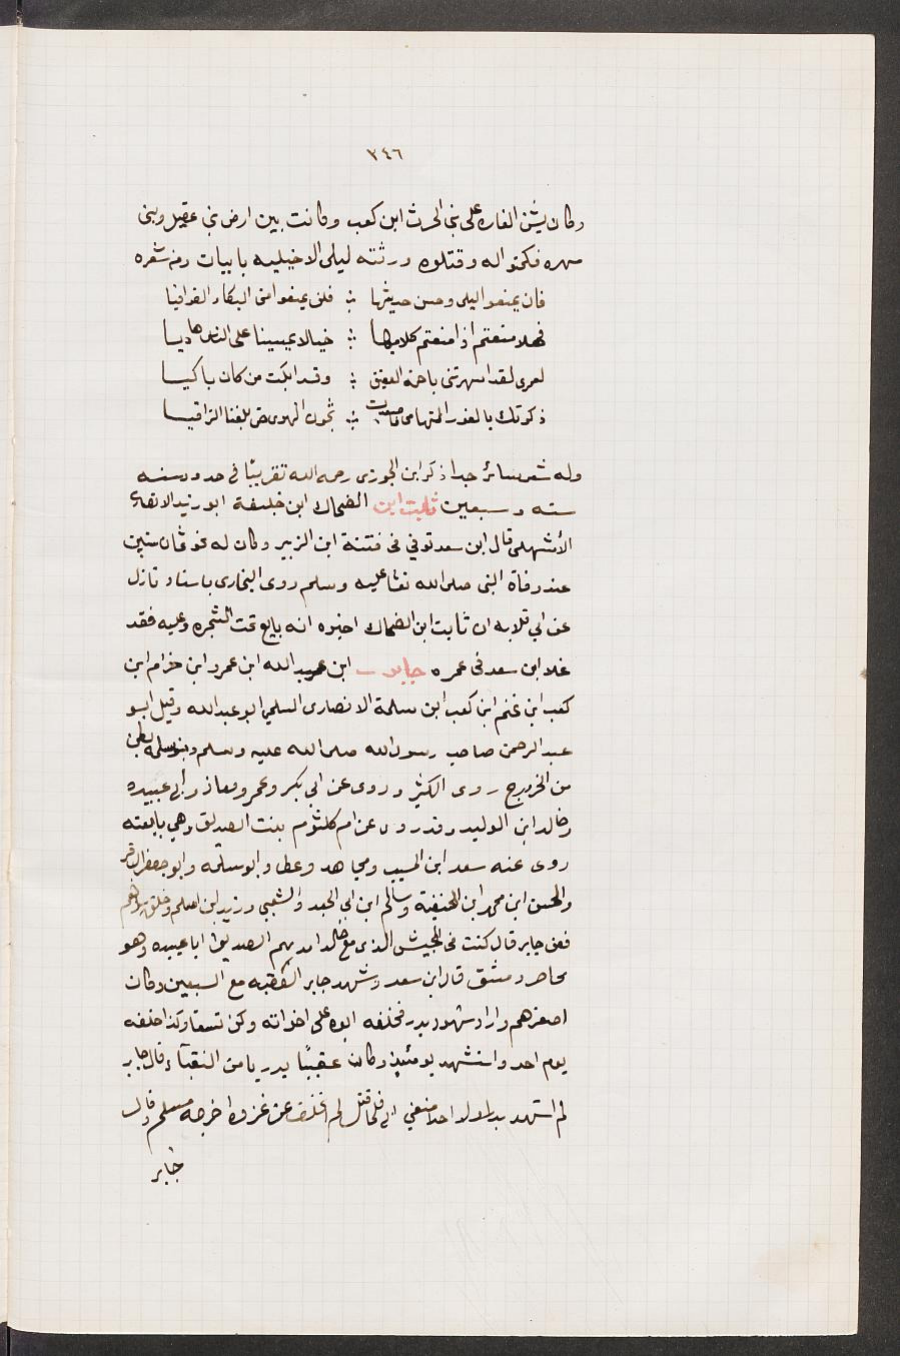 ٣٤٦
وكان يشن الغاره على بني الحرث ابن كعب وكانت بين ارض بني عقيل وبنى
مهره فكمنوا له وقتلوه ورثته ليلى الاخيليه بابيات ومن شعره
فان يمنعوا ليلى وحسن حديثها ؞ فلن يمنعوا منى البكاء والقوافيا
فهلا منعتم اذا منعتم كلامها ؞ خيالا يمسينا على الناى هاديا
لعمرى لقد اسهرتنى يا حمامة العقيق ؞ وقد ابكيت من كان باكيا
ذكرتك بالغور التهامى فاصعدت ؞ شجون الهوى حتى بلغنا التراقيا
وله شعر سائر جدا ذكر ابن الجوزى رحمه الله تقريبًا فى حدود سنه
سته وسبعين ثابت ابن الضحاك ابن خليفة ابو زيد الانصارى
الأشهلى قال ابن سعد توفي فى فتنة ابن الزبير وكان له نحو ثمان سنين
عند وفاة النبى صلى الله تعالى عليه وسلم روى البخارى باسناد نازل
عن ابي قلابه ان ثابت ابن الضحاك اخبره انه بايع تحت الشجره وعليه فقد
غلا ابن سعد فى عمره جابر ابن عبد الله ابن عمرو ابن حزام ابن
كعب ابن غنم ابن كعب ابن سلمة الانصارى السلمى ابو عبد الله وقيل ابو
عبد الرحمن صاحب رسول الله صلى الله عليه وسلم وبنو سلمه بطن
من الخزرج روى الكثير وروى عن ابي بكر وعمر ومعاذ وابى عبيده
وخالد ابن الوليد وقد روى عن ام كلثوم بنت الصديق وهي تابعته
روى عنه سعد ابن المسيب ومجاهد وعطا وابو سلمه وابو جعفر الباقر
والحسن ابن محمد ابن الحنفية وسالم ابن ابى الجعد والشعبي وزيد ابن اسلم وخلق سواهم
فعن جابر قال كنت فى الجيش الذى مع خالد امد بهم الصديق ابا عبيده وهو
محاصر دمشق قال ابن سعد وشهد جابر العقبه مع السبعين وكان
اصغرهم واراد شهود بدر فخلفه ابوه على اخواته وكن تسعا وكذا خلفه
يوم احد واستشهد يومئيذٍ وكان عقبيًا بدريا من النقبآء وقال جابر
لم اشهد بدرا ولا احد منعني ابى فلما قتل لم اتخلف عن غزوه اخرجه مسلم وقال
جابر